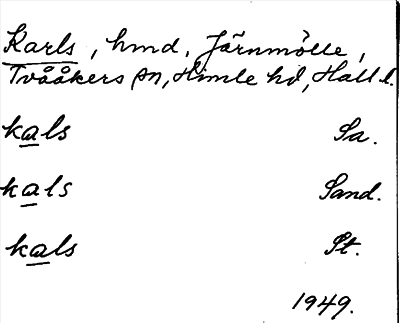 Karls, hmd. Järnmölle,
Tvååkers sn, Himle hd, Hall l.
kals Sa.
kals Sand.
kals St.
1949.